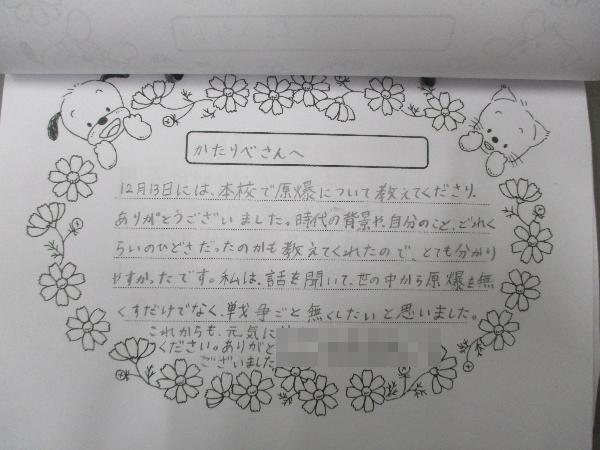 かたりべさんへ
12月13日には、本校で原爆について教えてくださり、
ありがとうございました。時代の背景や、自分のこと、どれく
らいのひどさだったのかも教えてくれたので、とても分かり
やすかったです。私は、話を聞いて、世の中から原爆を無
くすだけでなく、戦争ごと無くしたいと思いました。
これからも、元気に
ください。ありがと
ございました